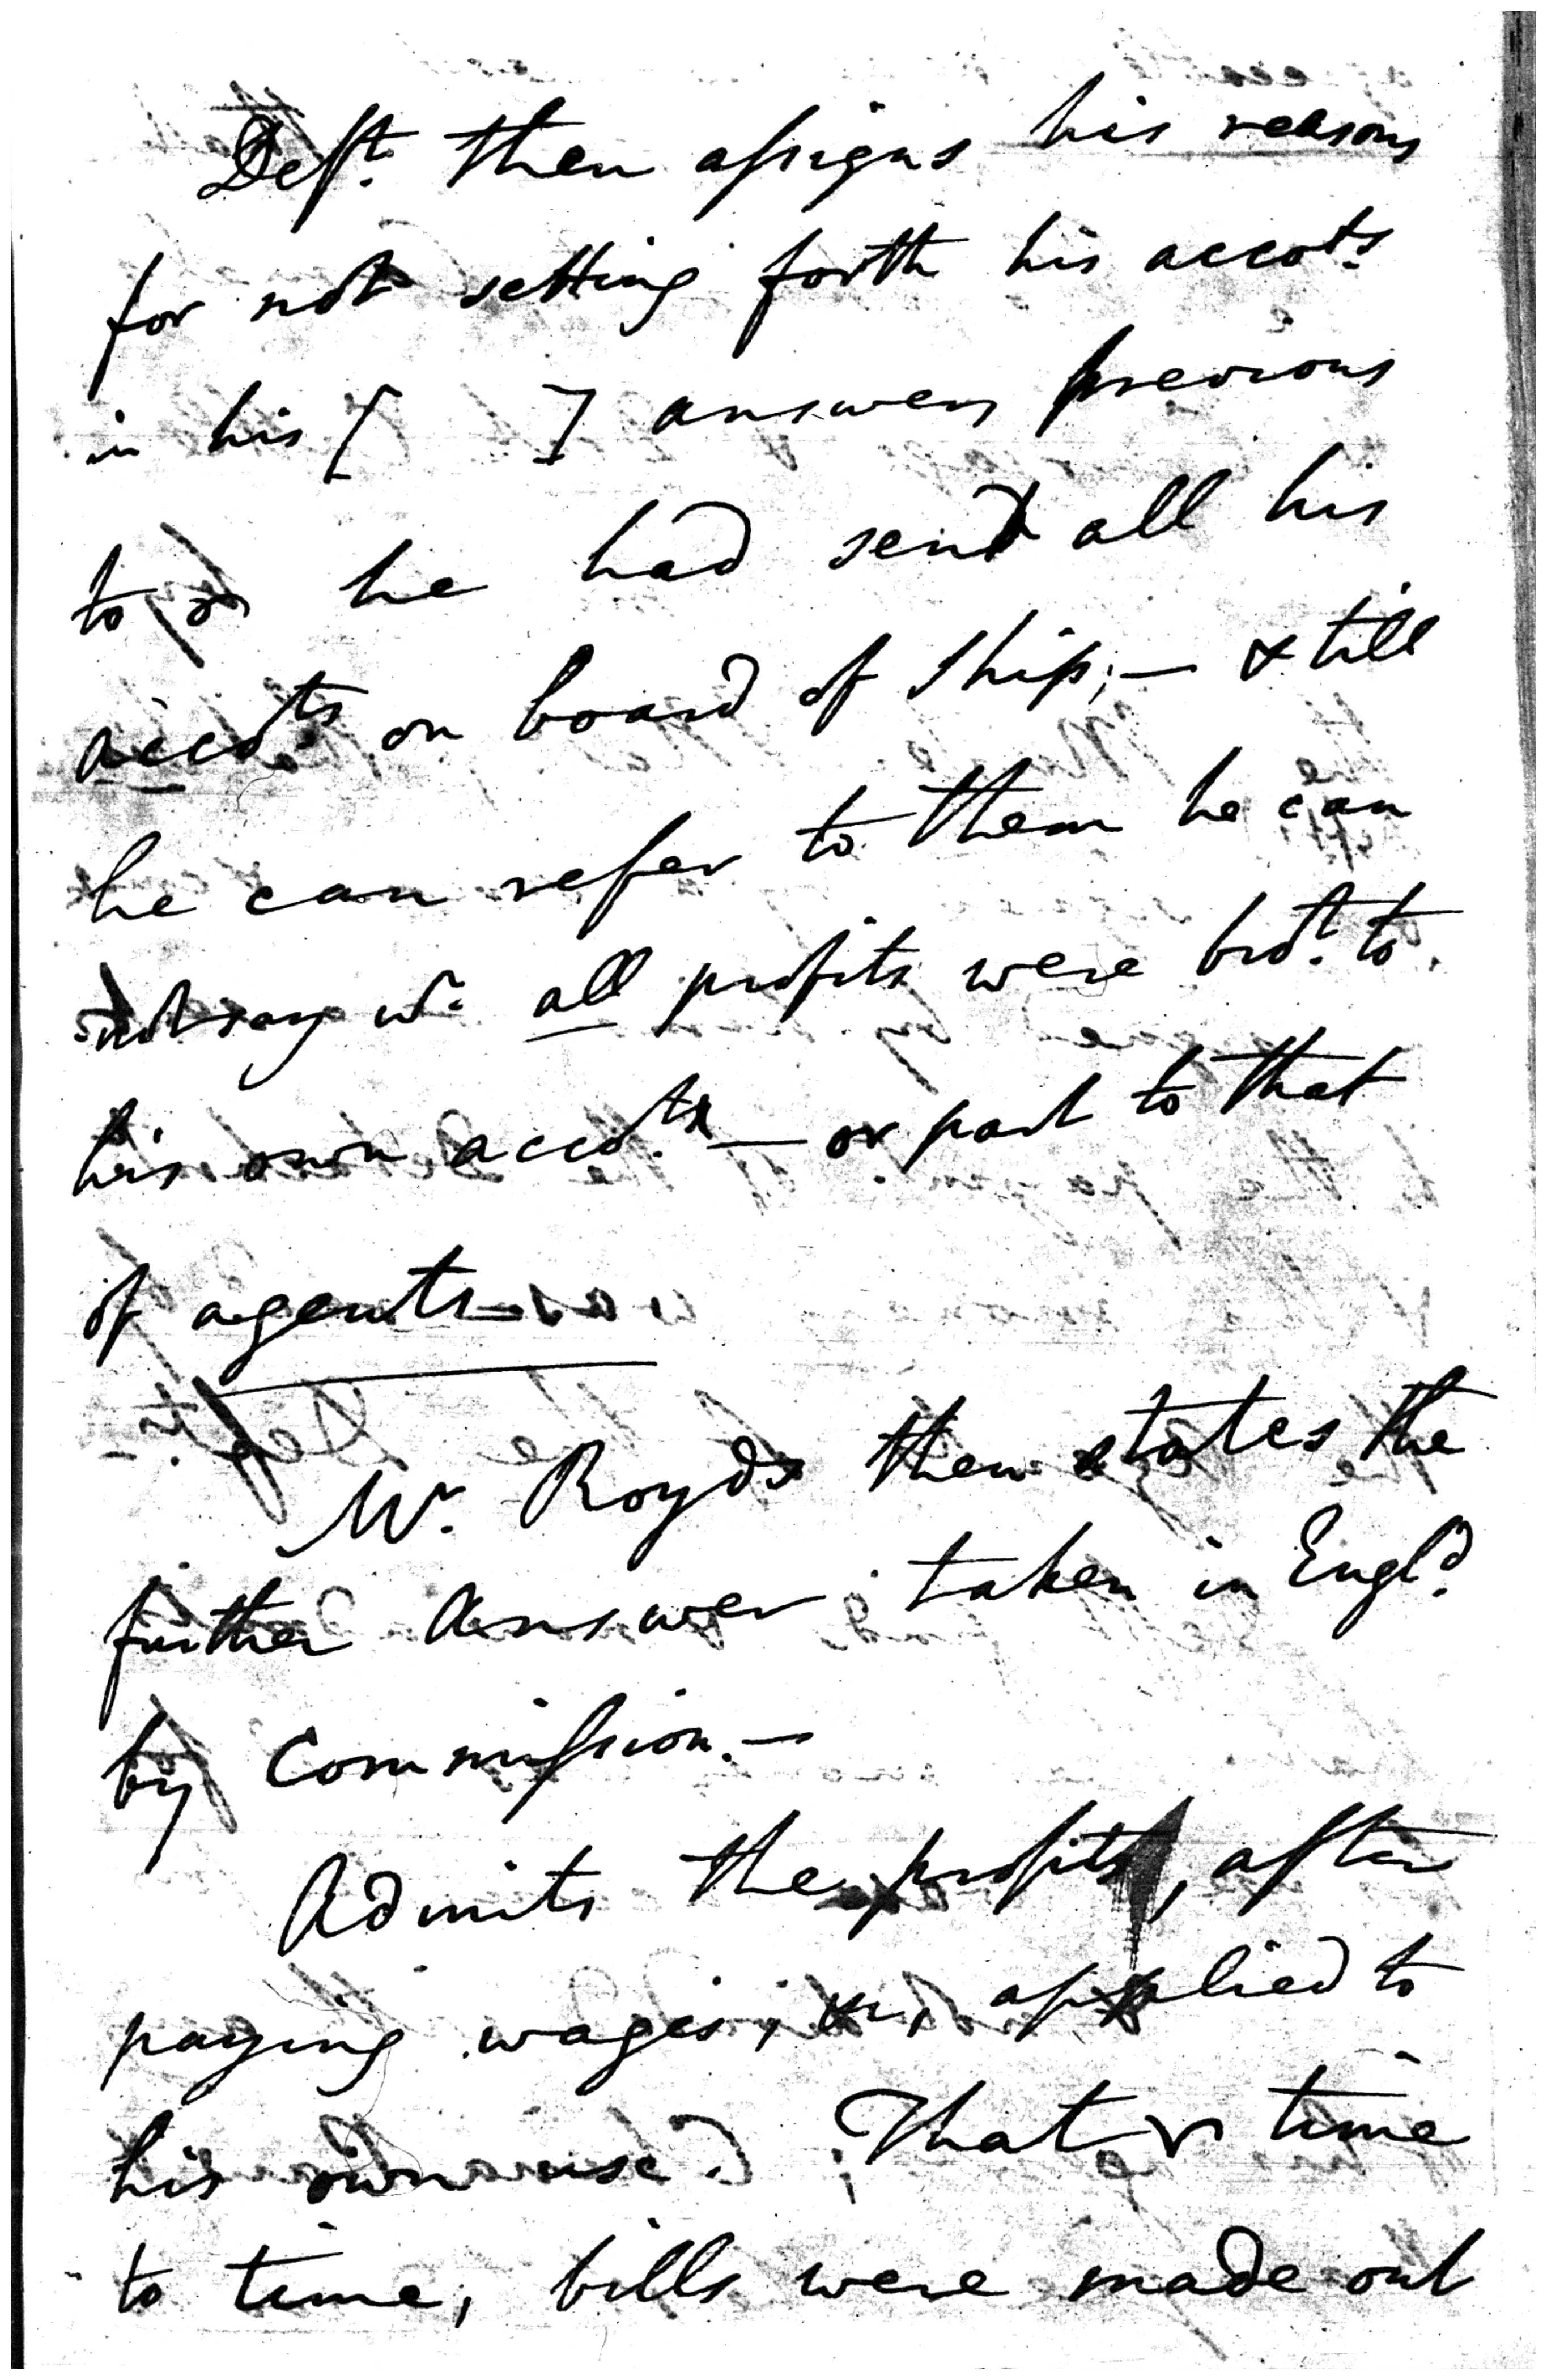 Deft. then assigns his reasons
for not setting forth his accots.
in his [ ] answers previous
to he had send all his
accots. on board of ship; — & till
he can refer to them he can
not say wr. all profits were brot. to
his own accots. — or part to that
of agents
Mr. Royds then states the
further answer taken in Engld.
by Commission. —
Admits the profits, after
paying wages, &c, applied to
his own use. That time
to time, bills were made out